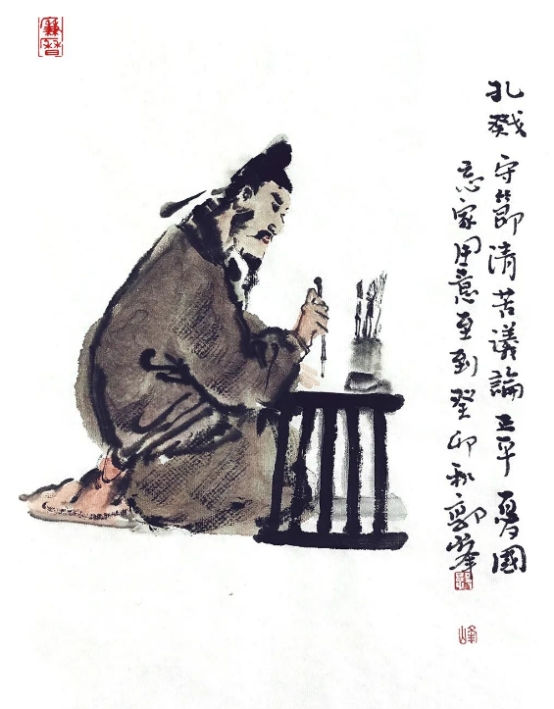 孔戣 守節清苦議論正平 憂國
忘家用意至到 癸卯秋 郭峯
峰